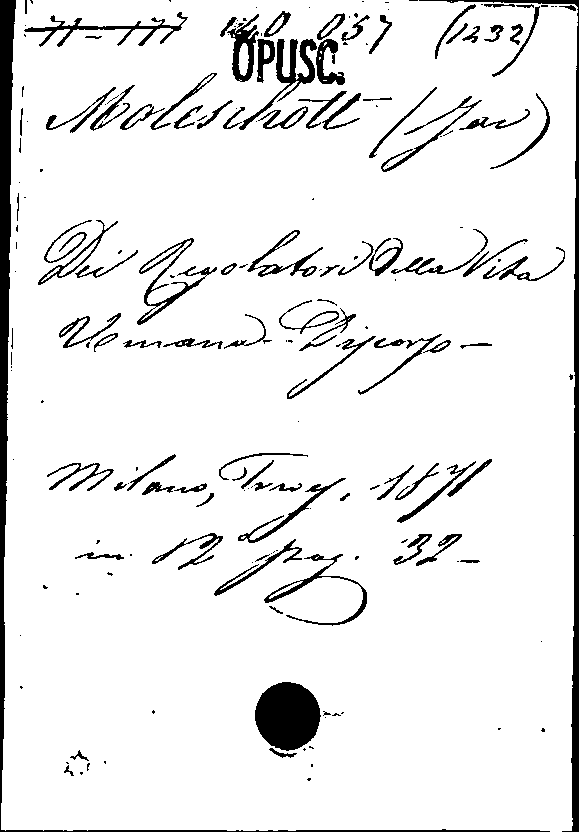 71-177 140 057 (1232)
OPUSC.
Moleschott (Jac)
Dei Regolatori della Vita
Umana - Discorso -
Milano, Trev., 1871
in 12° pag. 32 -